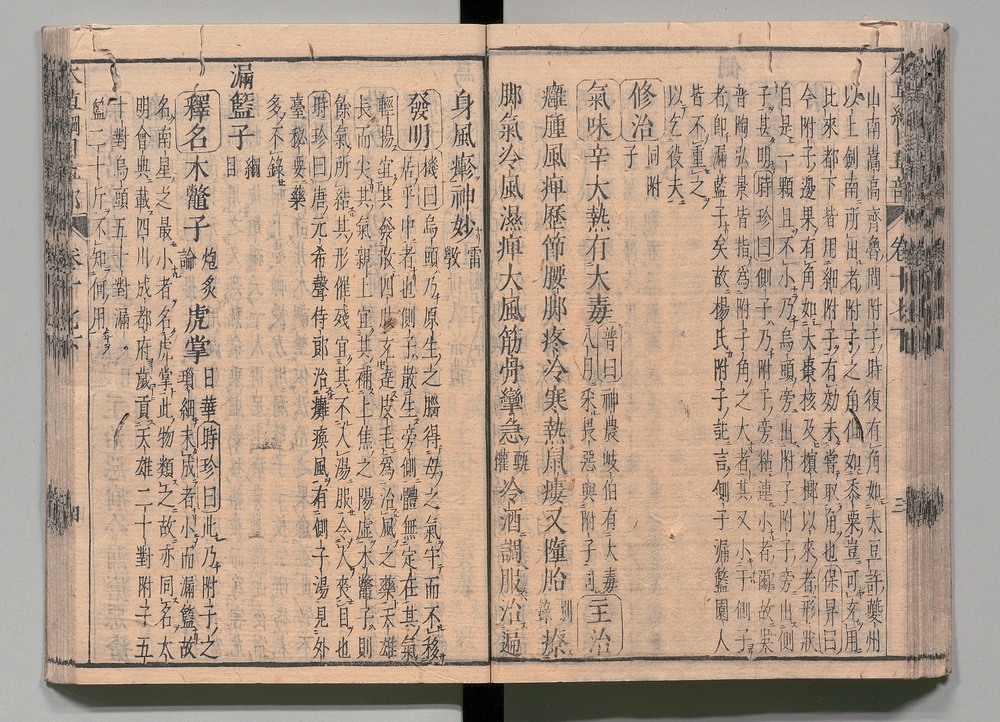 山南嵩高齊魯間附子時復有角如大豆許夔州
以上劍南所出者附子之角但如黍粟豈可充用
比來都下皆用細附子有効未嘗取角也保昇曰
今附子邊果有角如大棗核及檳榔以來者形狀
自是一顆且不小乃烏頭旁出附子附子旁出側
子甚明時珍曰側子乃附子旁粘連小者爾故吳
普陶弘景皆指爲附子角之大者其又小于側子
者卽漏藍子矣故楊氏附子記言側子漏籃園人
皆不重之
以乞役夫
修治同附子
氣味辛大熱有大毒普曰神農岐伯有大毒八月采畏惡與附子同主治
癰腫風痺歷節腰脚疼冷寒熱鼠瘻又墮胎別錄療
脚氣冷風濕痺大風筋骨攣急甄權冷酒調服治遍
身風瘮神妙雷斅
發明機曰烏頭乃原生之腦得母之氣守而不移
居乎中者也側子散生旁側體無定在其氣
輕揚宜其發散四肢充達皮毛爲治風之藥天雄
長而尖其氣親上宜其補上焦之陽虛木鼈子則
餘氣所結其形摧殘宜其不入湯服令人喪目也
時珍曰唐元希聲侍郎治癱瘓風有側子湯見外
臺秘要藥
多不錄
漏籃子綱目
釋名木鼈子炮炙論虎掌日華時珍曰此乃附子之瑣細未成者小而漏籃故
名南星之最小者名虎掌此物類之故亦同名大
明會典載四川成都府歲貢天雄二十對附子五
十對烏頭五十對漏
籃二十斤不知何用
本草綱目草部 卷十七下 三
本草綱目草部 卷十七下 四